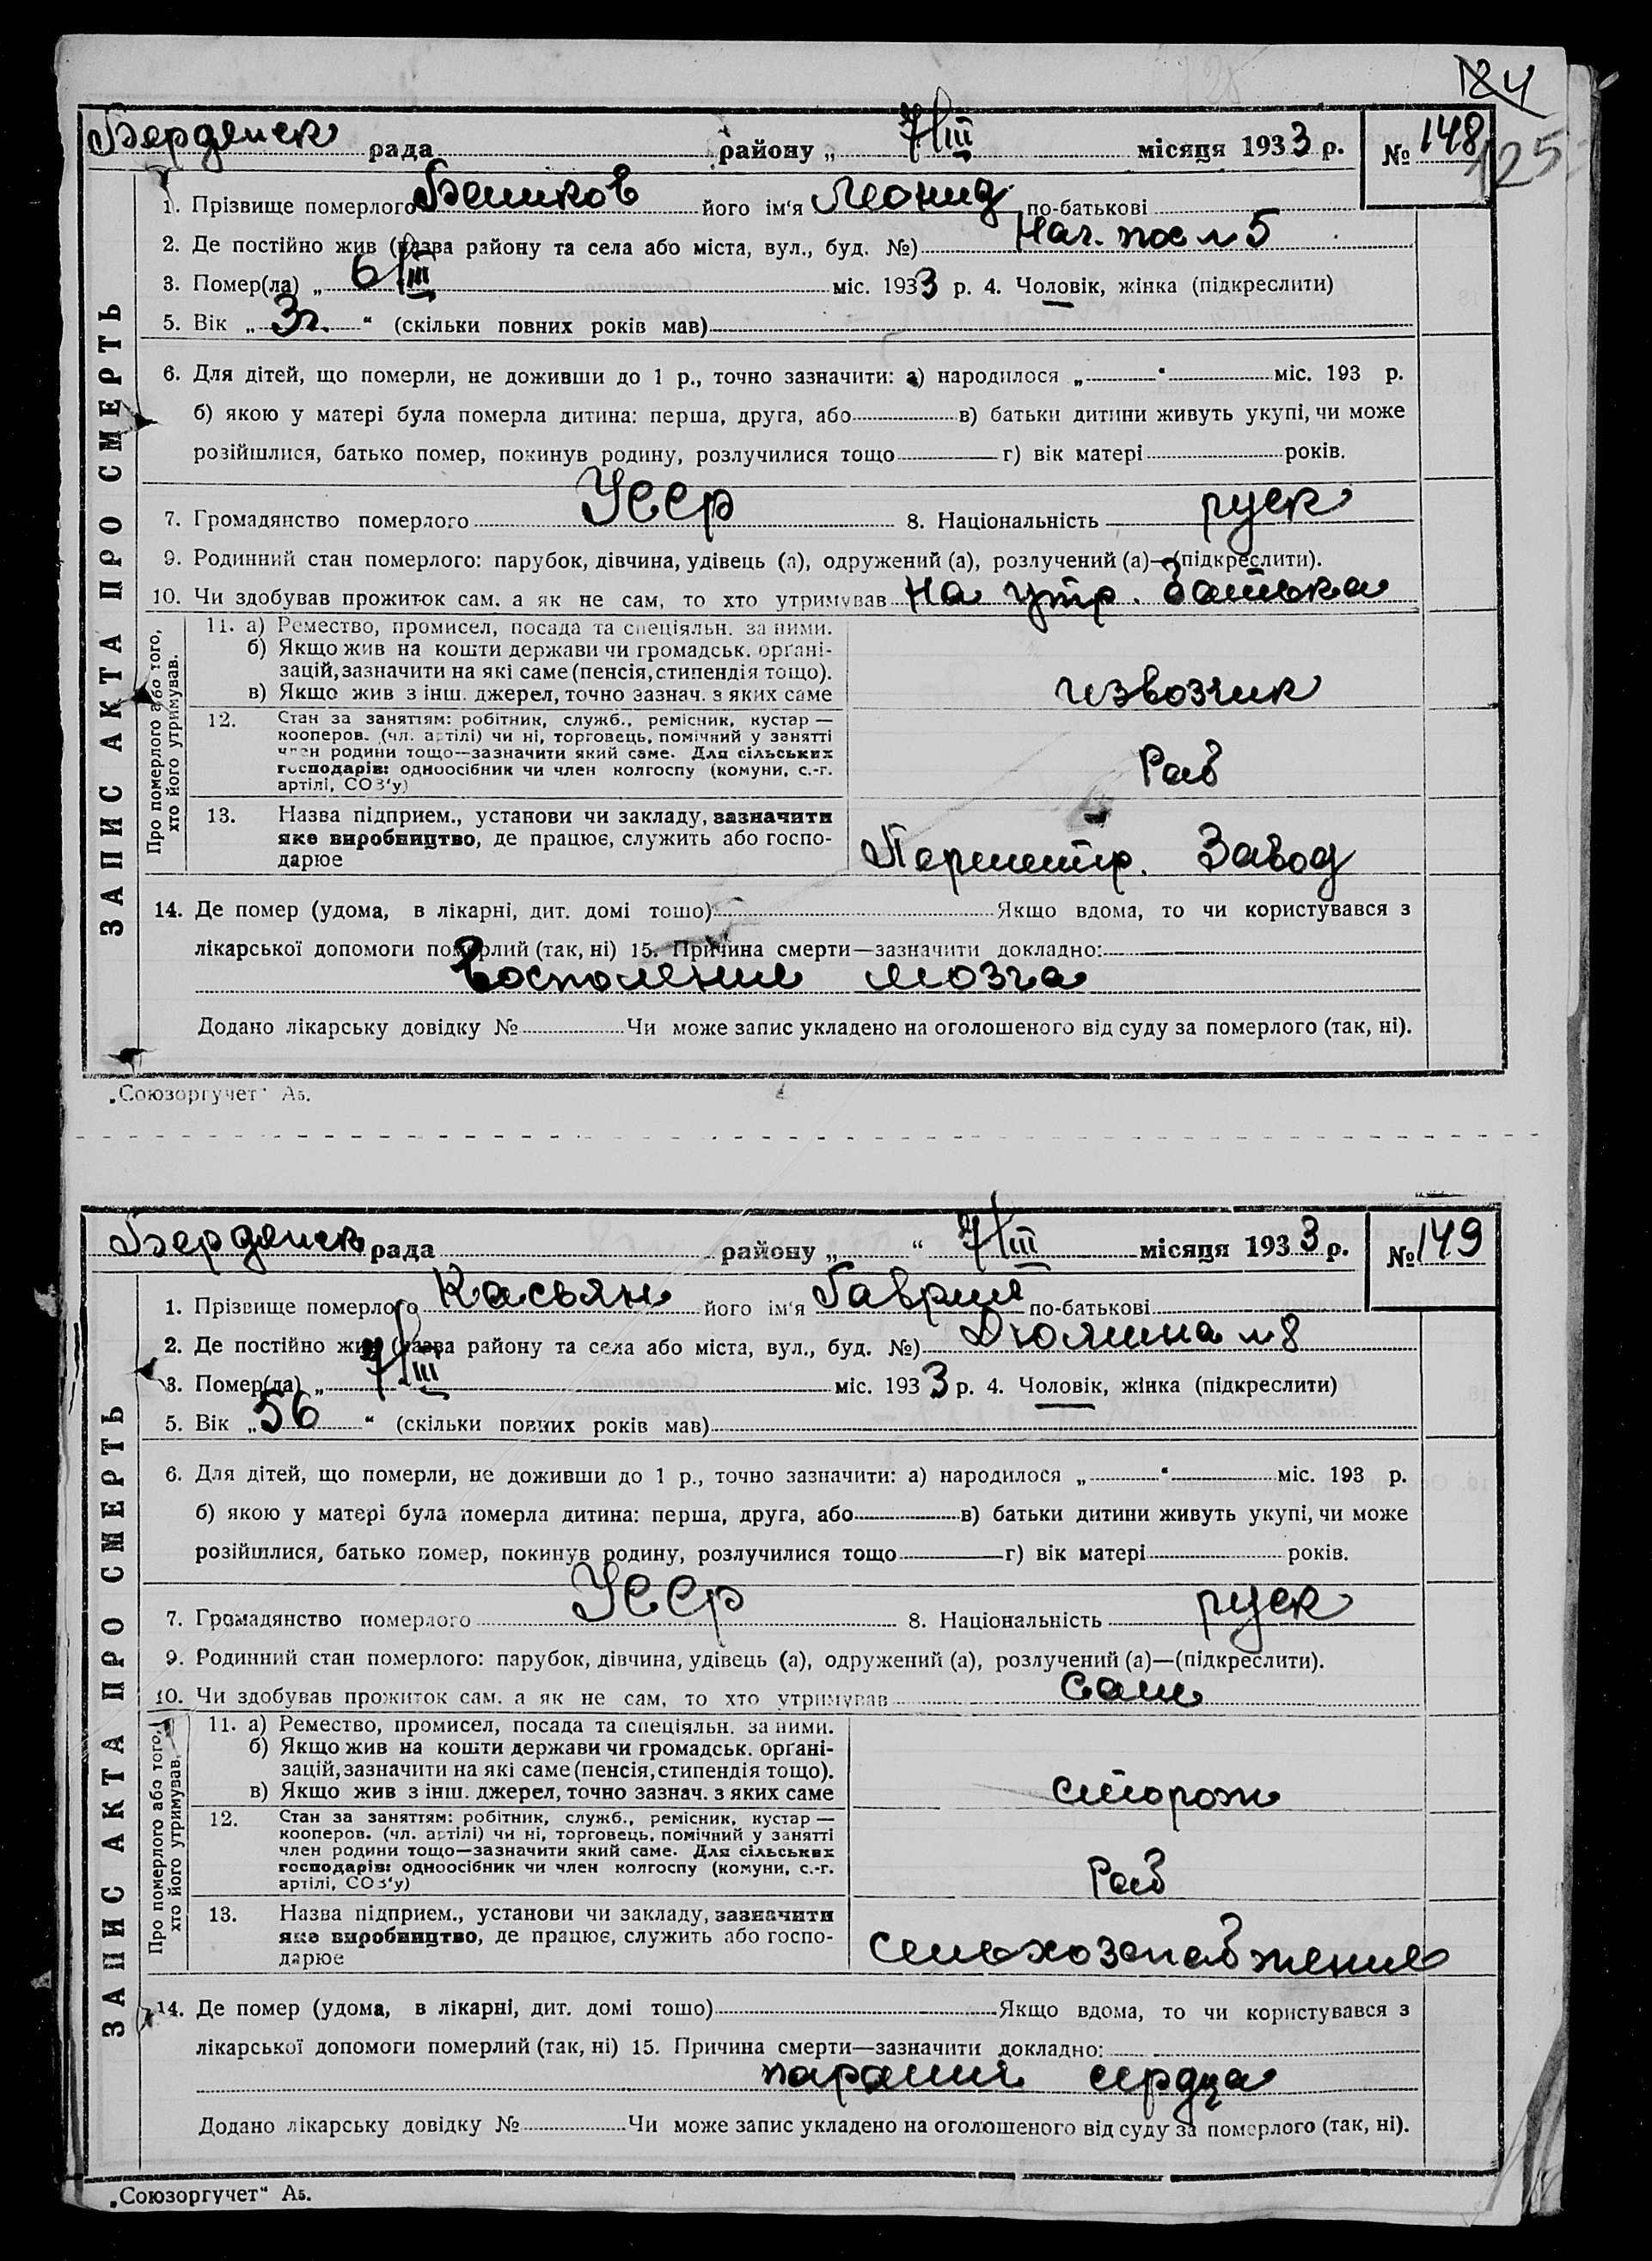 124
125
Бердянск рада району „ 7/III місяця 1933 р. № 148
ЗАПИС АКТА ПРО СМЕРТЬ
1. Прізвище померлого Бешков його ім‘я Леонид по-батькові
2. Де постійно жив (назва району та села або міста, вул., буд. №) Наг. пос N 5
3. Помер(ла) „ 6/III міс. 1933 р. 4. Чоловік, жінка (підкреслити)
5. Вік „ 3 г. “ (скільки повних років мав)
6. Для дітей, що померли, не доживши до 1 р., точно зазначити: а) народилося „ “ міс. 193 р.
б) якою у матері була померла дитина: перша, друга, або в) батьки дитини живуть укупі, чи може
розійшлися, батько помер, покинув родину, розлучилися тощо г) вік матері років.
7. Громадянство померлого Усср 8. Національність руск
9. Родинний стан померлого: парубок, дівчина, удівець (а), одружений (а), розлучений (а)—(підкреслити).
10. Чи здобував прожиток сам. а як не сам, то хто утримував на утр. батька
Про померлого або того,
хто його утримував.
11. а) Ремество, промисел, посада та спеціяльн. за ними.
б) Якщо жив на кошти держави чи громадськ. органі-
зацій, зазначити на які саме (пенсія, стипендія тощо).
в) Якщо жив з інш. джерел, точно зазнач. з яких саме
извозчик
12. Стан за заняттям: робітник, служб., ремісник, кустар —
кооперов. (чл. артілі) чи ні, торговець, помічний у занятті
член родини тощо—зазначити який саме. Для сільських
господарів: одноосібник чи член колгоспу (комуни, с.-г.
артілі, СОЗ‘у)
Раб
13. Назва підприєм., установи чи закладу, зазначити
яке виробництво, де працює, служить або госпо-
дарює
Завод
14. Де помер (удома, в лікарні, дит. домі тошо) Якщо вдома, то чи користувався з
лікарської допомоги померлий (так, ні) 15. Причина смерти—зазначити докладно:
Воспаление мозга
Додано лікарську довідку № Чи може запис укладено на оголошеного від суду за померлого (так, ні).
„Союзоргучет“ А5.
Бердянск рада району „ “ 7/III місяця 1933 р. № 149
ЗАПИС АКТА ПРО СМЕРТЬ
1. Прізвище померлого Касьян його ім‘я Гаврил по-батькові
2. Де постійно жив (назва району та села або міста, вул., буд. №) Дюмина N 8
3. Помер(ла) „ 7/III міс. 1933 р. 4. Чоловік, жінка (підкреслити)
5. Вік „ 56 “ (скільки повних років мав)
6. Для дітей, що померли, не доживши до 1 р., точно зазначити: а) народилося „ “ міс. 193 р.
б) якою у матері була померла дитина: перша, друга, або в) батьки дитини живуть укупі, чи може
розійшлися, батько помер, покинув родину, розлучилися тощо г) вік матері років.
7. Громадянство померлого Усср 8. Національність руск
9. Родинний стан померлого: парубок, дівчина, удівець (а), одружений (а), розлучений (а)—(підкреслити).
10. Чи здобував прожиток сам. а як не сам, то хто утримував Сам
Про померлого або того,
хто його утримував.
11. а) Ремество, промисел, посада та спеціяльн. за ними.
б) Якщо жив на кошти держави чи громадськ. органі-
зацій, зазначити на які саме (пенсія, стипендія тощо).
в) Якщо жив з інш. джерел, точно зазнач. з яких саме
сторож
12. Стан за заняттям: робітник, служб., ремісник, кустар —
кооперов. (чл. артілі) чи ні, торговець, помічний у занятті
член родини тощо—зазначити який саме. Для сільських
господарів: одноосібник чи член колгоспу (комуни, с.-г.
артілі, СОЗ‘у)
Раб
13. Назва підприєм., установи чи закладу, зазначити
яке виробництво, де працює, служить або госпо-
дарює
сельхозснабжение
14. Де помер (удома, в лікарні, дит. домі тошо) Якщо вдома, то чи користувався з
лікарської допомоги померлий (так, ні) 15. Причина смерти—зазначити докладно:
паралич сердца
Додано лікарську довідку № Чи може запис укладено на оголошеного від суду за померлого (так, ні).
„Союзоргучет“ А5.